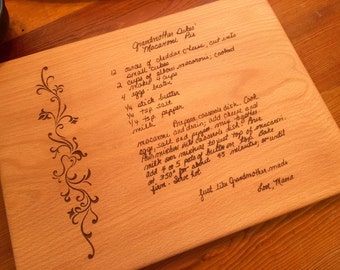 Grandmother Dukes'
Macaroni Pie
12 ounces of cheddar cheese, cut into
small cubes
2 cups of elbow macaroni, cooked
makes 4 cups
4 eggs
1/4 stick butter
1/4 tsp salt
1/4 tsp pepper
milk
Prepare casserole dish. Cook
macaroni and drain, add cheese and
egg, salt and pepper.
Pour mixture into casserole dish. Pour
milk over mixture to just top of macaroni.
Add 4 or 5 pats of butter on top. Bake
at 350° for about 45 minutes, or until
firm. Serve hot
Just like Grandmother made
Love, Mama